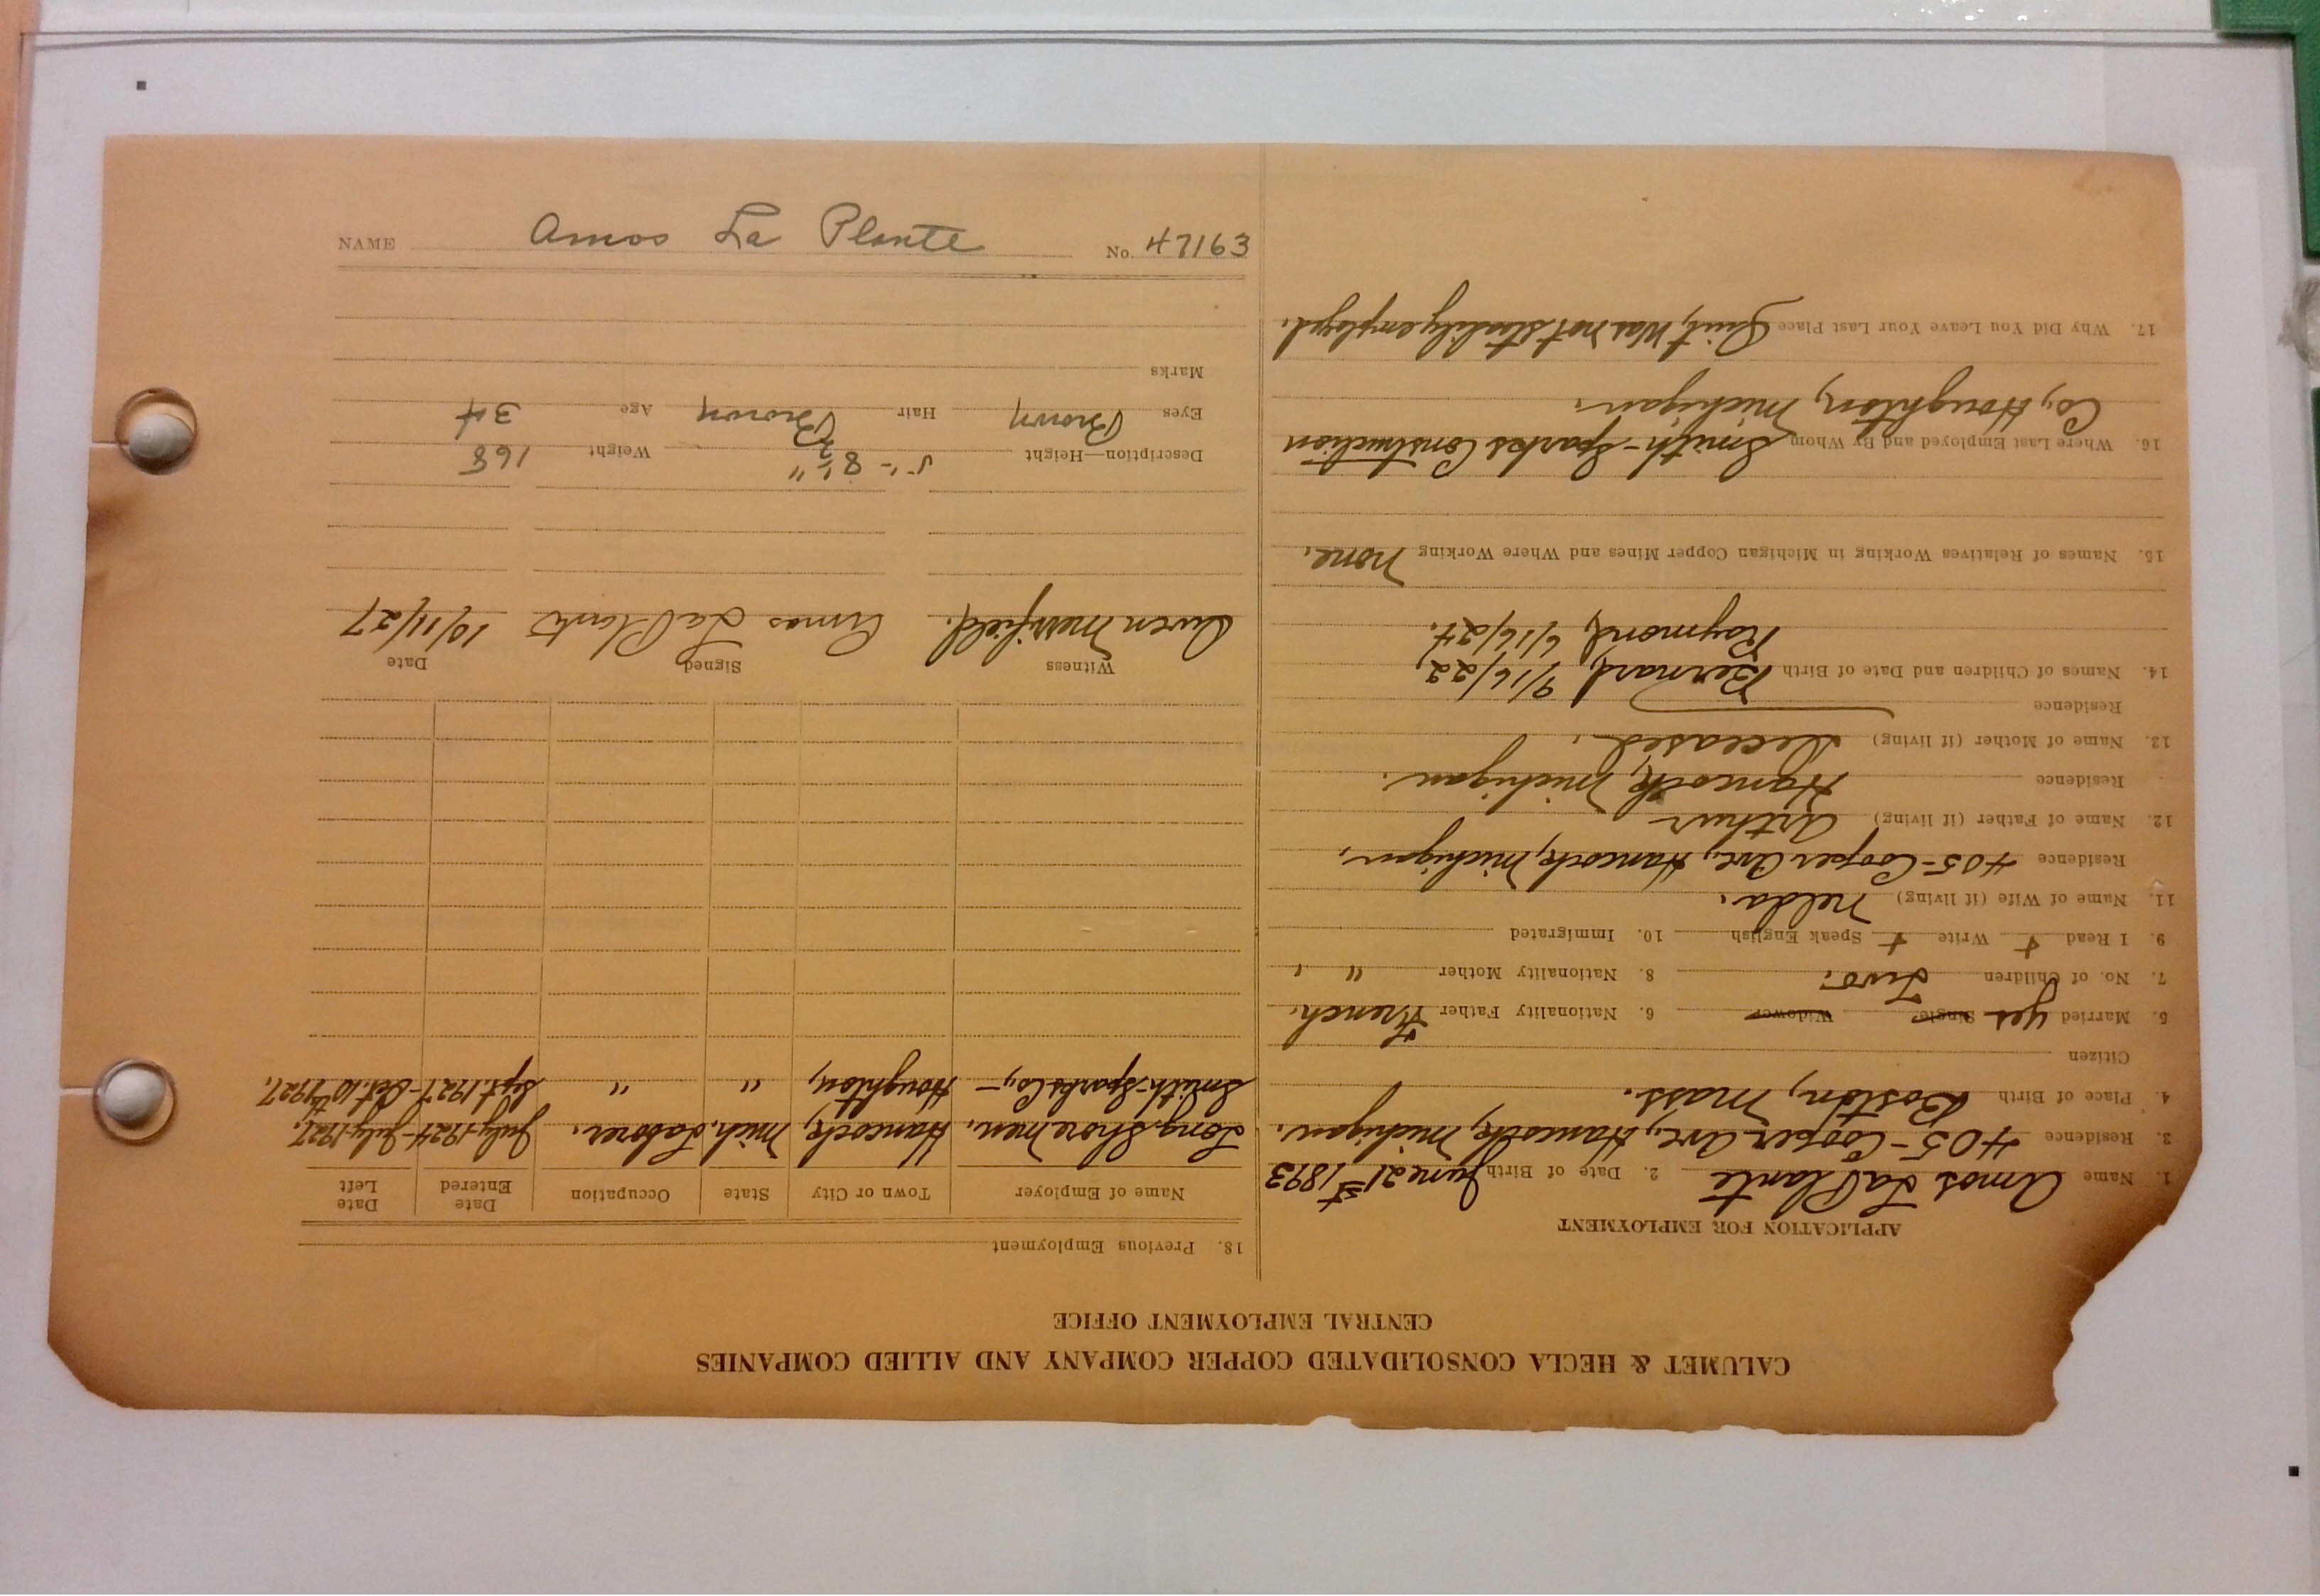 NAME Amos La Plante No. 47163
CALUMET & HECLA CONSOLIDATED COPPER COMPANY AND ALLIED COMPANIES
CENTRAL EMPLOYMENT OFFICE
APPLICATION FOR EMPLOYMENT
1. Name Amos LaPlante 2. Date of Birth June 21st 1893
3. Residence 405-Cooper Ave., Hancock, Michigan.
4. Place of Birth Boston, Mass.
Citizen
5. Married yes Single Widower 6. Nationality Father French.
7. No. of Children Two. 8. Nationality Mother "
9. I Read + Write + Speak English 10. Immigrated
11. Name of Wife (if living) Nelda.
Residence 405-Cooper Ave., Hancock, Michigan.
12. Name of Father (if living) Arthur
Residence Hancock, Michigan.
13. Name of Mother (if living) Deceased.
Residence
14. Names of Children and Date of Birth Bernard, 9/16/22,
Raymond, 6/16/24.
15. Names of Relatives Working in Michigan Copper Mines and Where Working None.
16. Where Last Employed and By Whom Smith-Sparks Construction
Co., Houghton, Michigan.
17. Why Did You Leave Your Last Place Quit, Was not steadily employed.
18. Previous Employment
Name of Employer Town or City State Occupation Date Entered Date Left
Long Shore Men. Hancock, Mich. Laborer. July-1924-July-1927.
Smith-Sparks Co.,- Houghton, " " Sept. 1927-Oct. 10th 1927.
Witness Signed Date
Owen Merrifield. Amos La Plante 10/11/27
Description—Height 5'-8½" Weight 168
Eyes Brown Hair Brown Age 34
Marks